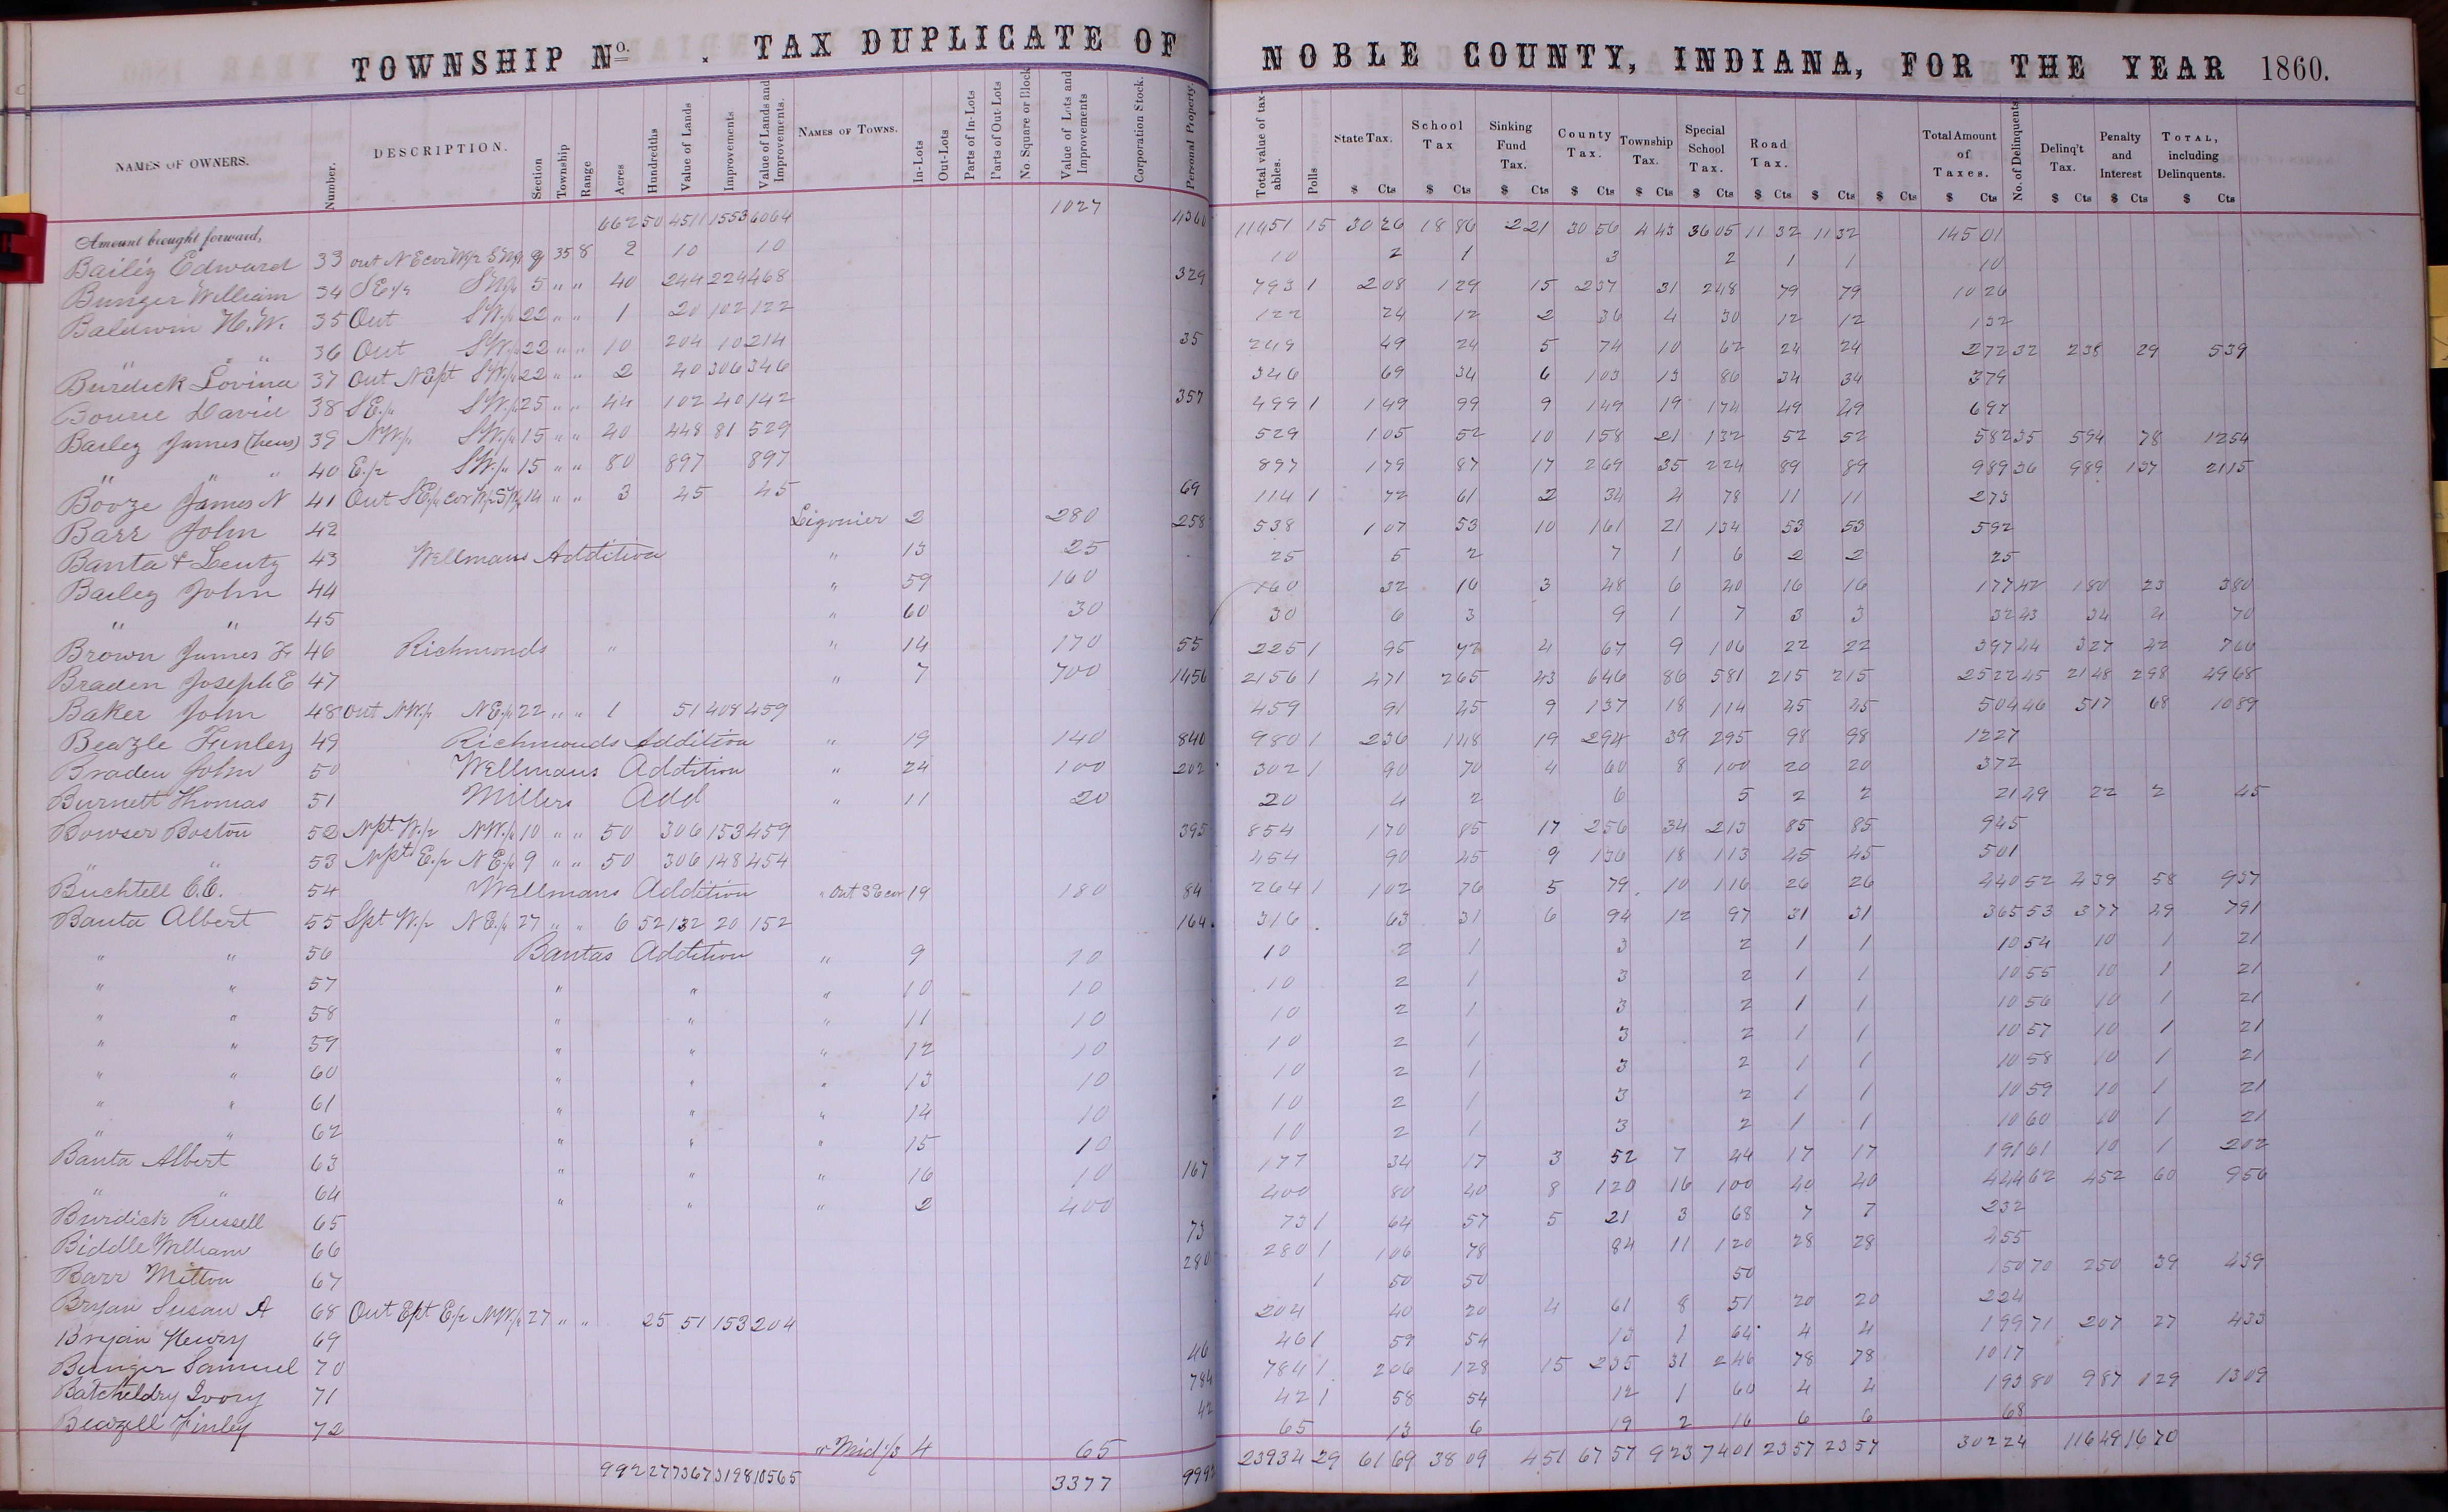 TOWNSHIP No. . TAX DUPLICATE OF NOBLE COUNTY, INDIANA, FOR THE YEAR 1860.
NAMES OF OWNERS. Number. DESCRIPTION. Section Township Range Acres Hundredths Value of Lands Improvements Value of Lands and Improvements. NAMES OF TOWNS. In-Lots Out-Lots Parts of In-Lots Parts of Out-Lots No. Square or Block Value of Lots and Improvements Corporation Stock. Personal Property. Total value of taxables. Polls State Tax. School Tax Sinking Fund Tax. County Tax. Township Tax. Special School Tax. Road Tax. Total Amount of Taxes. No. of Delinquents Delinq't Tax. Penalty and Interest TOTAL, including Delinquents.
$ Cts $ Cts $ Cts $ Cts $ Cts $ Cts $ Cts $ Cts $ Cts $ Cts $ Cts $ Cts $ Cts
Amount brought forward, 662 50 4511 1553 6064 1027 4360 11451 15 30 26 18 86 2 21 30 56 4 43 36 05 11 32 11 32 145 01
Bailey Edward 33 out NE cor W/2 SW/4 9 35 8 2 10 10 10 2 1 3 2 1 1 10
Bunger William 34 SE/4 SW/4 5 " " 40 244 224 468 329 793 1 2 08 1 29 15 2 37 31 2 48 79 79 10 26
Baldwin H. W. 35 Out SW/4 22 " " 1 20 102 122 122 24 12 2 36 4 30 12 12 1 32
" " 36 Out SW/4 22 " " 10 204 10 214 35 249 49 24 5 74 10 62 24 24 2 72 32 2 38 29 5 39
Burdick Lovina 37 Out NE pt SW/4 22 " " 2 40 306 346 346 69 34 6 1 03 13 86 34 34 3 79
Bourie David 38 SE/4 SW/4 25 " " 44 102 40 142 357 499 1 1 49 99 9 1 49 19 1 74 49 49 6 97
Bailey James (heirs) 39 NW/4 SW/4 15 " " 40 448 81 529 529 1 05 52 10 1 58 21 1 32 52 52 5 82 35 5 94 78 12 54
" " " 40 E/2 SW/4 15 " " 80 897 897 897 1 79 87 17 2 69 35 2 24 89 89 9 89 36 9 89 1 37 21 15
Booze James N 41 Out SE/4 cor W/2 SW/4 14 " " 3 45 45 69 114 1 72 61 2 34 4 78 11 11 2 73
Barr John 42 Ligonier 2 280 258 538 1 07 53 10 1 61 21 1 34 53 53 5 92
Banta & Lentz 43 Wellmans Addition " 13 25 25 5 2 7 1 6 2 2 25
Bailey John 44 " 59 160 160 32 16 3 48 6 40 16 16 1 77 42 1 80 23 3 80
" " 45 " 60 30 30 6 3 9 1 7 3 3 32 43 34 4 70
Brown James H 46 Richmonds " " 14 170 55 225 1 95 72 4 67 9 1 06 22 22 3 97 44 3 27 42 7 66
Braden Joseph E 47 " 7 700 1456 2156 1 4 71 2 65 43 6 46 86 5 81 2 15 2 15 25 22 45 21 48 2 98 49 68
Baker John 48 Out NW/4 NE/4 22 " " 1 51 408 459 459 91 45 9 1 37 18 1 14 45 45 5 04 46 5 17 68 10 89
Beazle Finley 49 Richmonds Addition " 19 140 840 980 1 2 36 1 48 19 2 94 39 2 95 98 98 12 27
Braden John 50 Wellmans Addition " 24 100 202 302 1 90 70 4 60 8 1 00 20 20 3 72
Burnett Thomas 51 Millers Add " 11 20 20 4 2 6 5 2 2 21 49 22 2 45
Bowser Boston 52 N pt W/2 NW/4 10 " " 50 306 153 459 395 854 1 70 85 17 2 56 34 2 13 85 85 9 45
" " 53 N pt E/2 NE/4 9 " " 50 306 148 454 454 90 45 9 1 36 18 1 13 45 45 5 01
Buchtell E.E. 54 Wellmans Addition " Out SE cor 19 180 84 264 1 1 02 76 5 79 10 1 16 26 26 4 40 52 4 39 58 9 37
Banta Albert 55 S pt W/2 NE/4 27 " " 6 52 132 20 152 164 316 63 31 6 94 12 97 31 31 3 65 53 3 77 49 7 91
" " 56 Bantas Addition " 9 10 10 2 1 3 2 1 1 10 54 10 1 21
" " 57 " " " 10 10 10 2 1 3 2 1 1 10 55 10 1 21
" " 58 " " " 11 10 10 2 1 3 2 1 1 10 56 10 1 21
" " 59 " " " 12 10 10 2 1 3 2 1 1 10 57 10 1 21
" " 60 " " " 13 10 10 2 1 3 2 1 1 10 58 10 1 21
" " 61 " " " 14 10 10 2 1 3 2 1 1 10 59 10 1 21
" " 62 " " " 15 10 10 2 1 3 2 1 1 10 60 10 1 21
Banta Albert 63 " " " 16 10 167 177 34 17 3 52 7 44 17 17 1 91 61 10 1 2 02
" " 64 " " " 2 400 400 80 40 8 1 20 16 1 00 40 40 4 44 62 4 52 60 9 56
Burdick Russell 65 73 73 1 64 57 5 21 3 68 7 7 2 32
Biddle William 66 280 280 1 1 06 78 84 11 1 20 28 28 4 55
Barr Milton 67 1 50 50 50 1 50 70 2 50 39 4 39
Bryan Susan A 68 Out E pt E/2 NW/4 27 " " 25 51 153 204 204 40 20 4 61 8 51 20 20 2 24
Bryan Henry 69 46 46 1 59 54 13 1 64 4 4 1 99 71 2 07 27 4 33
Bunger Samuel 70 784 784 1 2 06 1 28 15 2 35 31 2 46 78 78 10 17
Batcheldry Ivory 71 42 42 1 58 54 12 1 60 4 4 1 93 80 9 87 1 29 13 09
Beazell Finley 72 " Mid 1/3 4 65 65 13 6 19 2 16 6 6 68
992 27 7367 3198 10565 3377 9992 23934 29 61 69 38 09 4 51 67 57 9 23 74 01 23 57 23 57 302 24 116 49 16 70